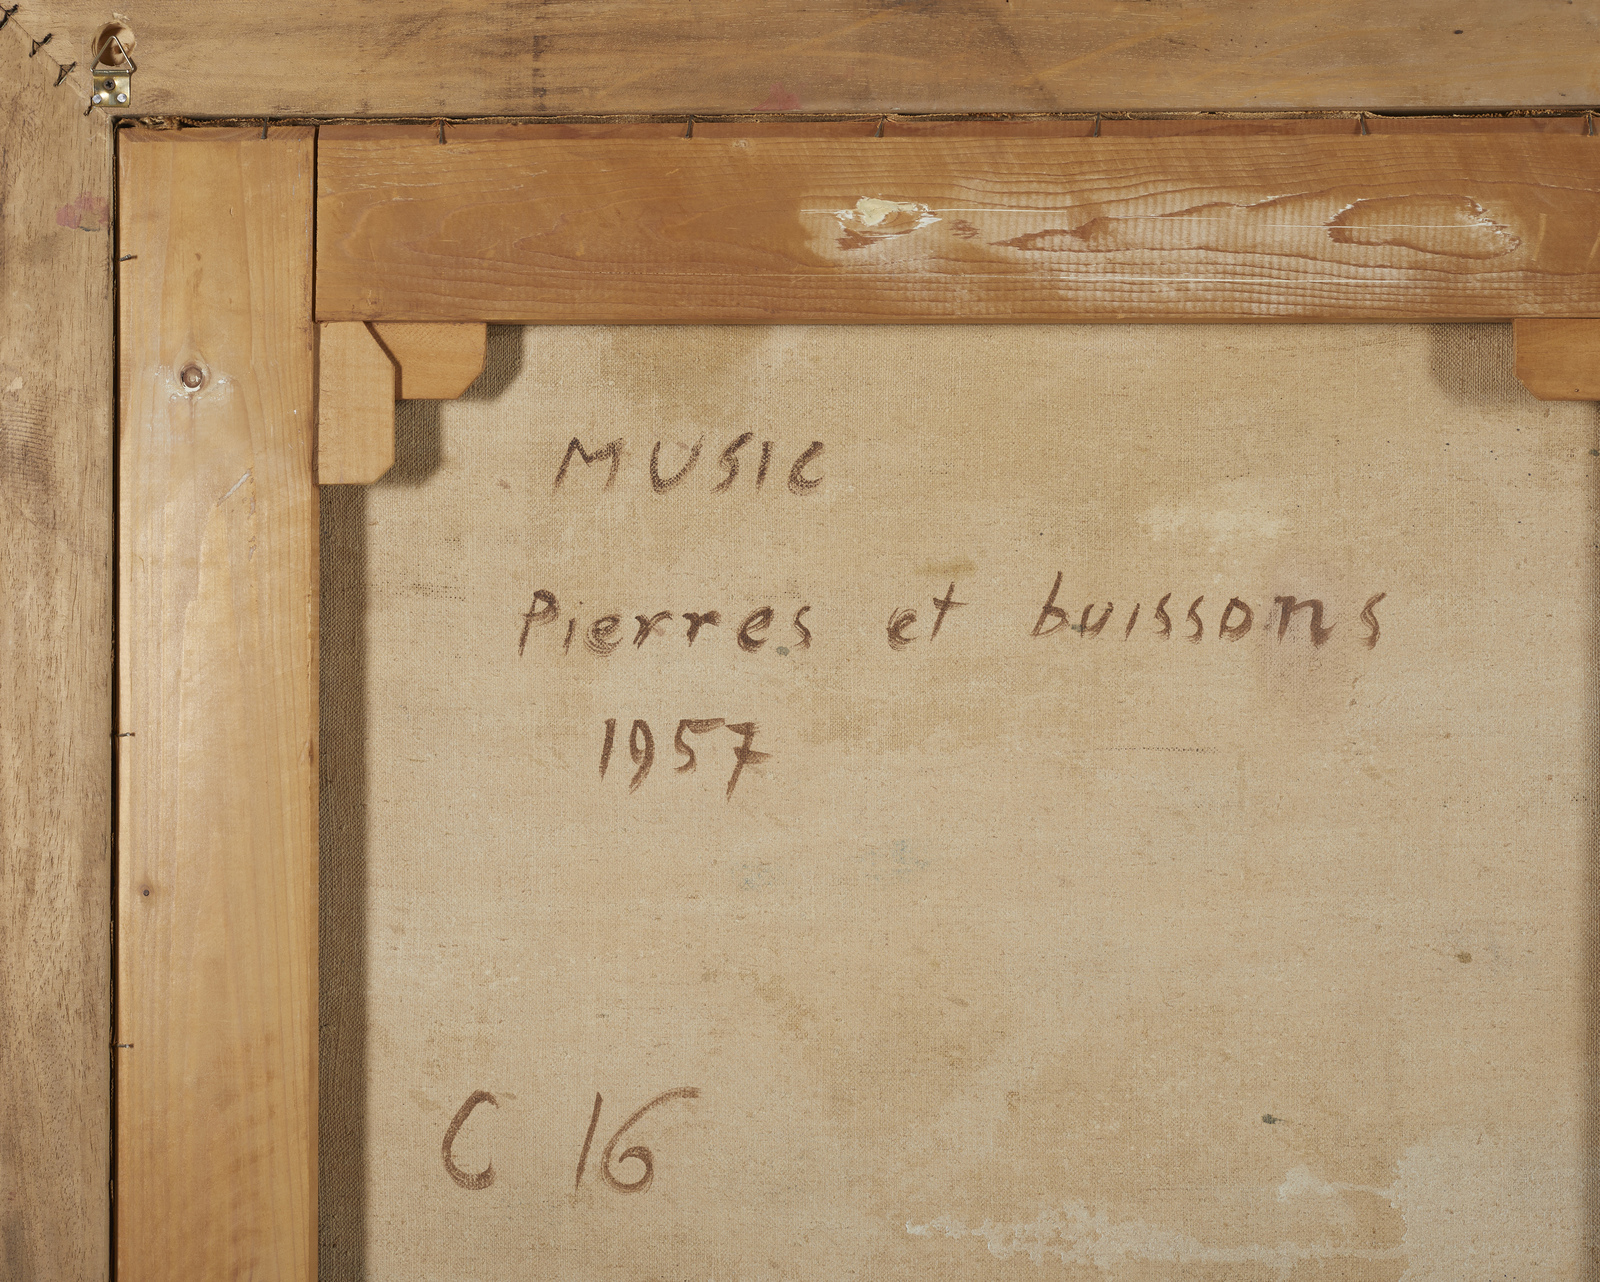 MUSIC
Pierres et buissons
1957
C 16